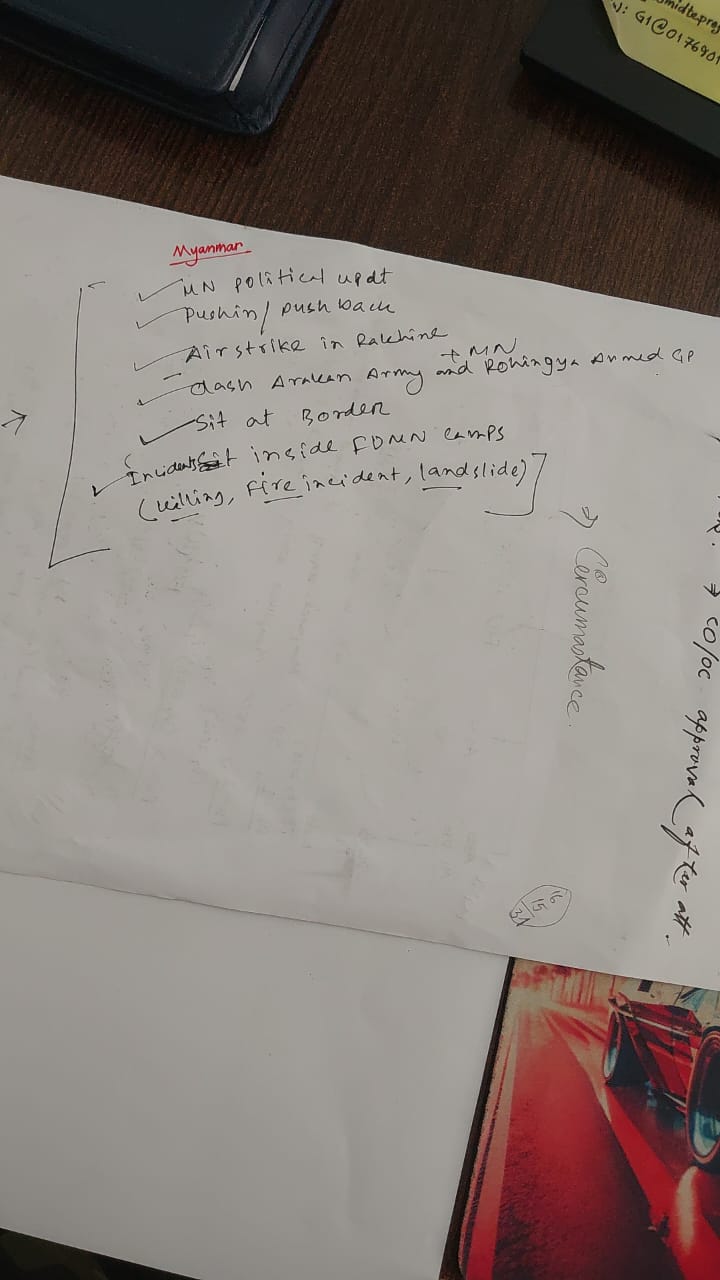 Myanmar
MN political updt
Pushin/ push back
Airstrike in Rakhine
+ MN
clash Arakan Army and Rohingya Armed GP
Sit at Border
Incidents inside FDMN camps
(killing, Fire incident, landslide)
⇒ Cercumastance.
→ CO/OC approval after att.
16
15
31
G1@0176901